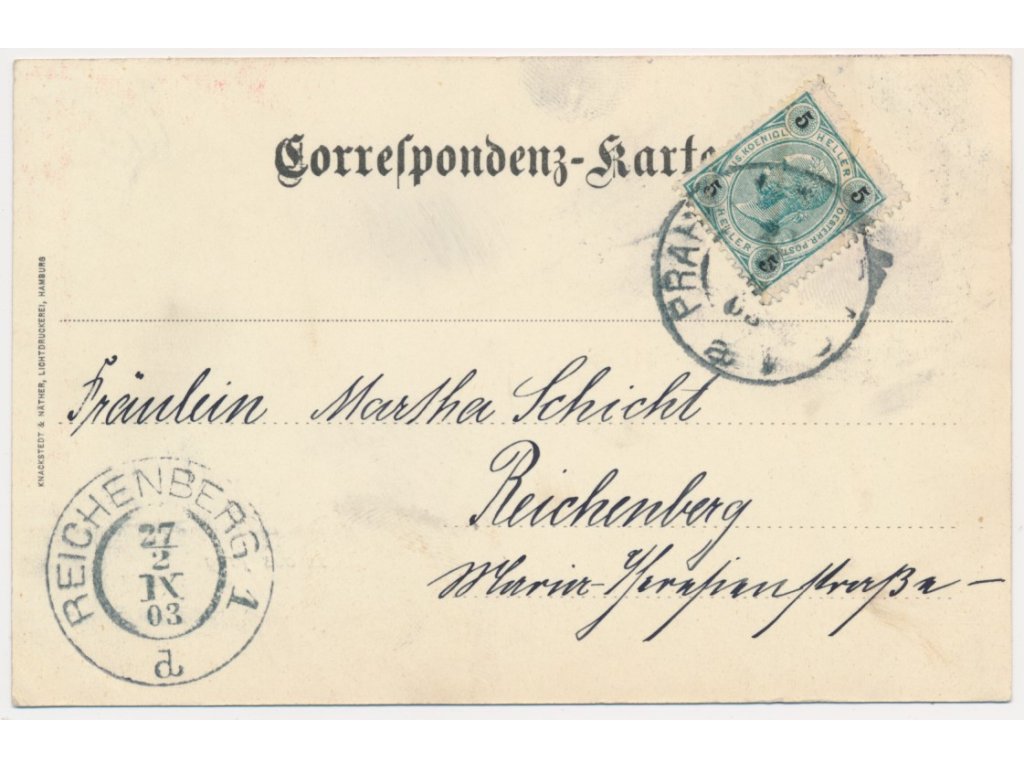 Correſpondenz-Karte
5 5 5 5
KAIS KOENIGL
OESTERR. POST
HELLER HELLER
PRA
03
KNACKSTEDT & NÄTHER, LICHTDRUCKEREI, HAMBURG
Fräulein Martha Schicht
Reichenberg
Maria-Theresienstraße-
REICHENBERG 1
27
2
IX
03
d